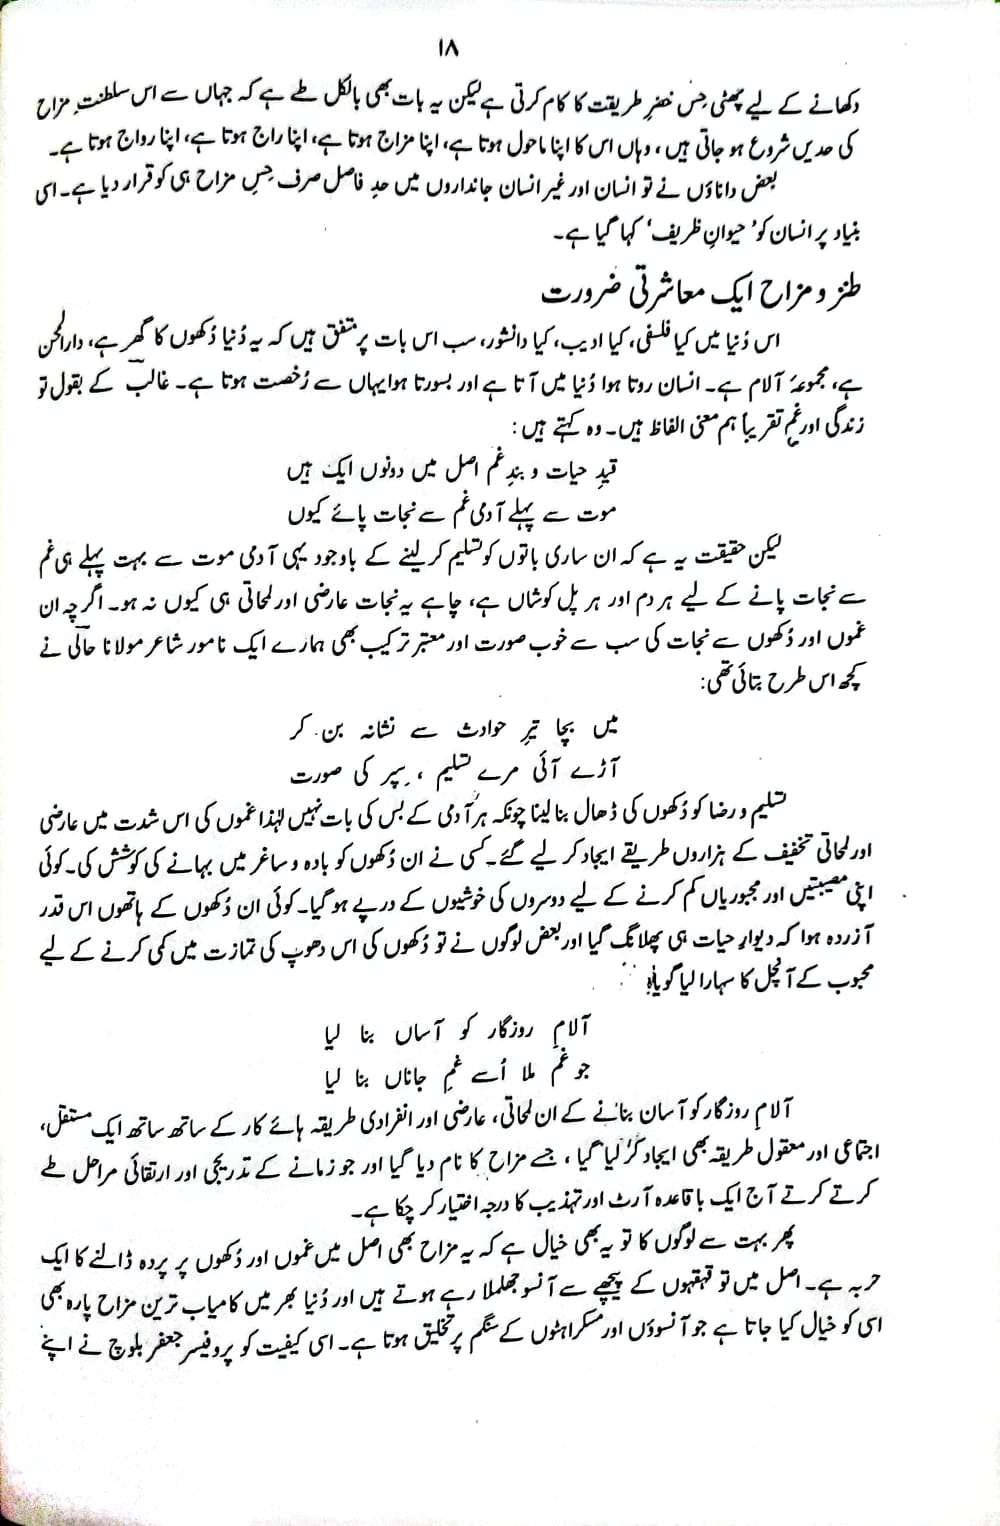 ۱۸
دکھانے کے لیے چھٹی حِس خضرِ طریقت کا کام کرتی ہے لیکن یہ بات بھی بالکل طے ہے کہ جہاں سے اس سلطنتِ مزاح
کی حدیں شروع ہو جاتی ہیں، وہاں اس کا اپنا ماحول ہوتا ہے، اپنا مزاج ہوتا ہے، اپنا راج ہوتا ہے، اپنا رواج ہوتا ہے۔
بعض داناؤں نے تو انسان اور غیر انسان جانداروں میں حدِ فاصل صرف حِسِ مزاح ہی کو قرار دیا ہے۔ اسی
بنیاد پر انسان کو ’حیوانِ ظریف‘ کہا گیا ہے۔
طنز و مزاح ایک معاشرتی ضرورت
اس دُنیا میں کیا فلسفی، کیا ادیب، کیا دانشور، سب اس بات پر متفق ہیں کہ یہ دُنیا دُکھوں کا گھر ہے، دارالمحن
ہے، مجموعۂ آلام ہے۔ انسان روتا ہوا دُنیا میں آتا ہے اور بسورتا ہوا یہاں سے رُخصت ہوتا ہے۔ غالبؔ کے بقول تو
زندگی اور غم تقریباً ہم معنی الفاظ ہیں۔ وہ کہتے ہیں:
قیدِ حیات و بندِ غم اصل میں دونوں ایک ہیں
موت سے پہلے آدمی غم سے نجات پائے کیوں
لیکن حقیقت یہ ہے کہ ان ساری باتوں کو تسلیم کر لینے کے باوجود یہی آدمی موت سے بہت پہلے ہی غم
سے نجات پانے کے لیے ہر دم اور ہر پل کوشاں ہے، چاہے یہ نجات عارضی اور لمحاتی ہی کیوں نہ ہو۔ اگرچہ ان
غموں اور دُکھوں سے نجات کی سب سے خوب صورت اور معتبر ترکیب بھی ہمارے ایک نامور شاعر مولانا حالیؔ نے
کچھ اس طرح بتائی تھی:
میں بچا تیرِ حوادث سے نشانہ بن کر
آڑے آئی مرے تسلیم، سِپر کی صورت
تسلیم و رضا کو دُکھوں کی ڈھال بنا لینا چونکہ ہر آدمی کے بس کی بات نہیں لہٰذا غموں کی اس شدت میں عارضی
اور لمحاتی تخفیف کے ہزاروں طریقے ایجاد کر لیے گئے۔ کسی نے ان دُکھوں کو بادہ و ساغر میں بہانے کی کوشش کی۔ کوئی
اپنی مصیبتیں اور مجبوریاں کم کرنے کے لیے دوسروں کی خوشیوں کے درپے ہو گیا۔ کوئی ان دُکھوں کے ہاتھوں اس قدر
آزردہ ہوا کہ دیوارِ حیات ہی پھلانگ گیا اور بعض لوگوں نے تو دُکھوں کی اس دھوپ کی تمازت میں کمی کرنے کے لیے
محبوب کے آنچل کا سہارا لیا گویا:
آلامِ روزگار کو آساں بنا لیا
جو غم ملا اُسے غمِ جاناں بنا لیا
آلامِ روزگار کو آسان بنانے کے ان لمحاتی، عارضی اور انفرادی طریقہ ہائے کار کے ساتھ ساتھ ایک مستقل،
اجتماعی اور معقول طریقہ بھی ایجاد کر لیا گیا، جسے مزاح کا نام دیا گیا اور جو زمانے کے تدریجی اور ارتقائی مراحل طے
کرتے کرتے آج ایک باقاعدہ آرٹ اور تہذیب کا درجہ اختیار کر چکا ہے۔
پھر بہت سے لوگوں کا تو یہ بھی خیال ہے کہ یہ مزاح بھی اصل میں غموں اور دُکھوں پر پردہ ڈالنے کا ایک
حربہ ہے۔ اصل میں تو قہقہوں کے پیچھے سے آنسو جھلملا رہے ہوتے ہیں اور دُنیا بھر میں کامیاب ترین مزاح پارہ بھی
اسی کو خیال کیا جاتا ہے جو آنسوؤں اور مسکراہٹوں کے سنگم پر تخلیق ہوتا ہے۔ اسی کیفیت کو پروفیسر جعفر بلوچ نے اپنے